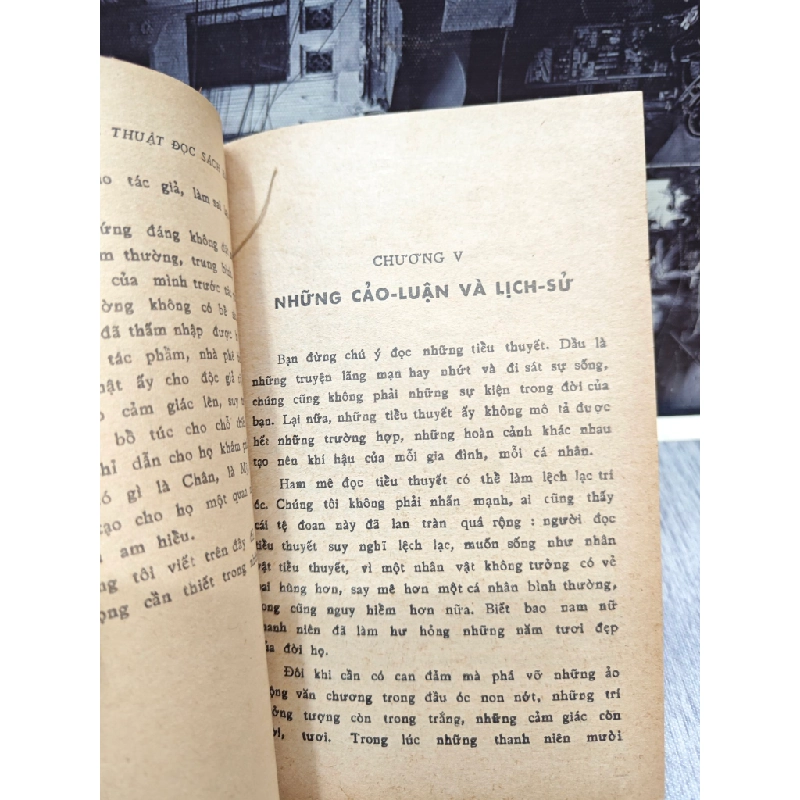 THUẬT ĐỌC SÁCH
tác giả, làm sai
đáng không
thường, trung
của mình trước
không có
đã thấm nhập được
tác phẩm, nhà phê
ấy cho độc giả
cảm giác lên, suy
bồ túc cho chỗ
dẫn cho họ khám
gì là Chân, là
cho họ một quan
am hiểu.
tôi viết trên đây
cần thiết trong
CHƯƠNG V
NHỮNG CẢO-LUẬN VÀ LỊCH-SỬ
Bạn đừng chú ý đọc những tiểu thuyết. Dầu là
những truyện lãng mạn hay nhứt và đi sát sự sống,
chúng cũng không phải những sự kiện trong đời của
bạn. Lại nữa, những tiểu thuyết ấy không mô tả được
hết những trường hợp, những hoàn cảnh khác nhau
tạo nên khí hậu của mỗi gia đình, mỗi cá nhân.
Ham mê đọc tiểu thuyết có thể làm lệch lạc trí
óc. Chúng tôi không phải nhấn mạnh, ai cũng thấy
cái tệ đoan này đã lan tràn quá rộng : người đọc
tiểu thuyết suy nghĩ lệch lạc, muốn sống như nhân
vật tiểu thuyết, vì một nhân vật không tưởng có vẻ
oai hùng hơn, say mê hơn một cá nhân bình thường,
song cũng nguy hiểm hơn nữa. Biết bao nam nữ
thanh niên đã làm hư hỏng những năm tươi đẹp
của đời họ.
Đôi khi cần có can đảm mà phá vỡ những ảo
mộng văn chương trong đầu óc non nớt, những trí
tưởng tượng còn trong trắng, những cảm giác còn
tươi. Trong lúc những thanh niên mười